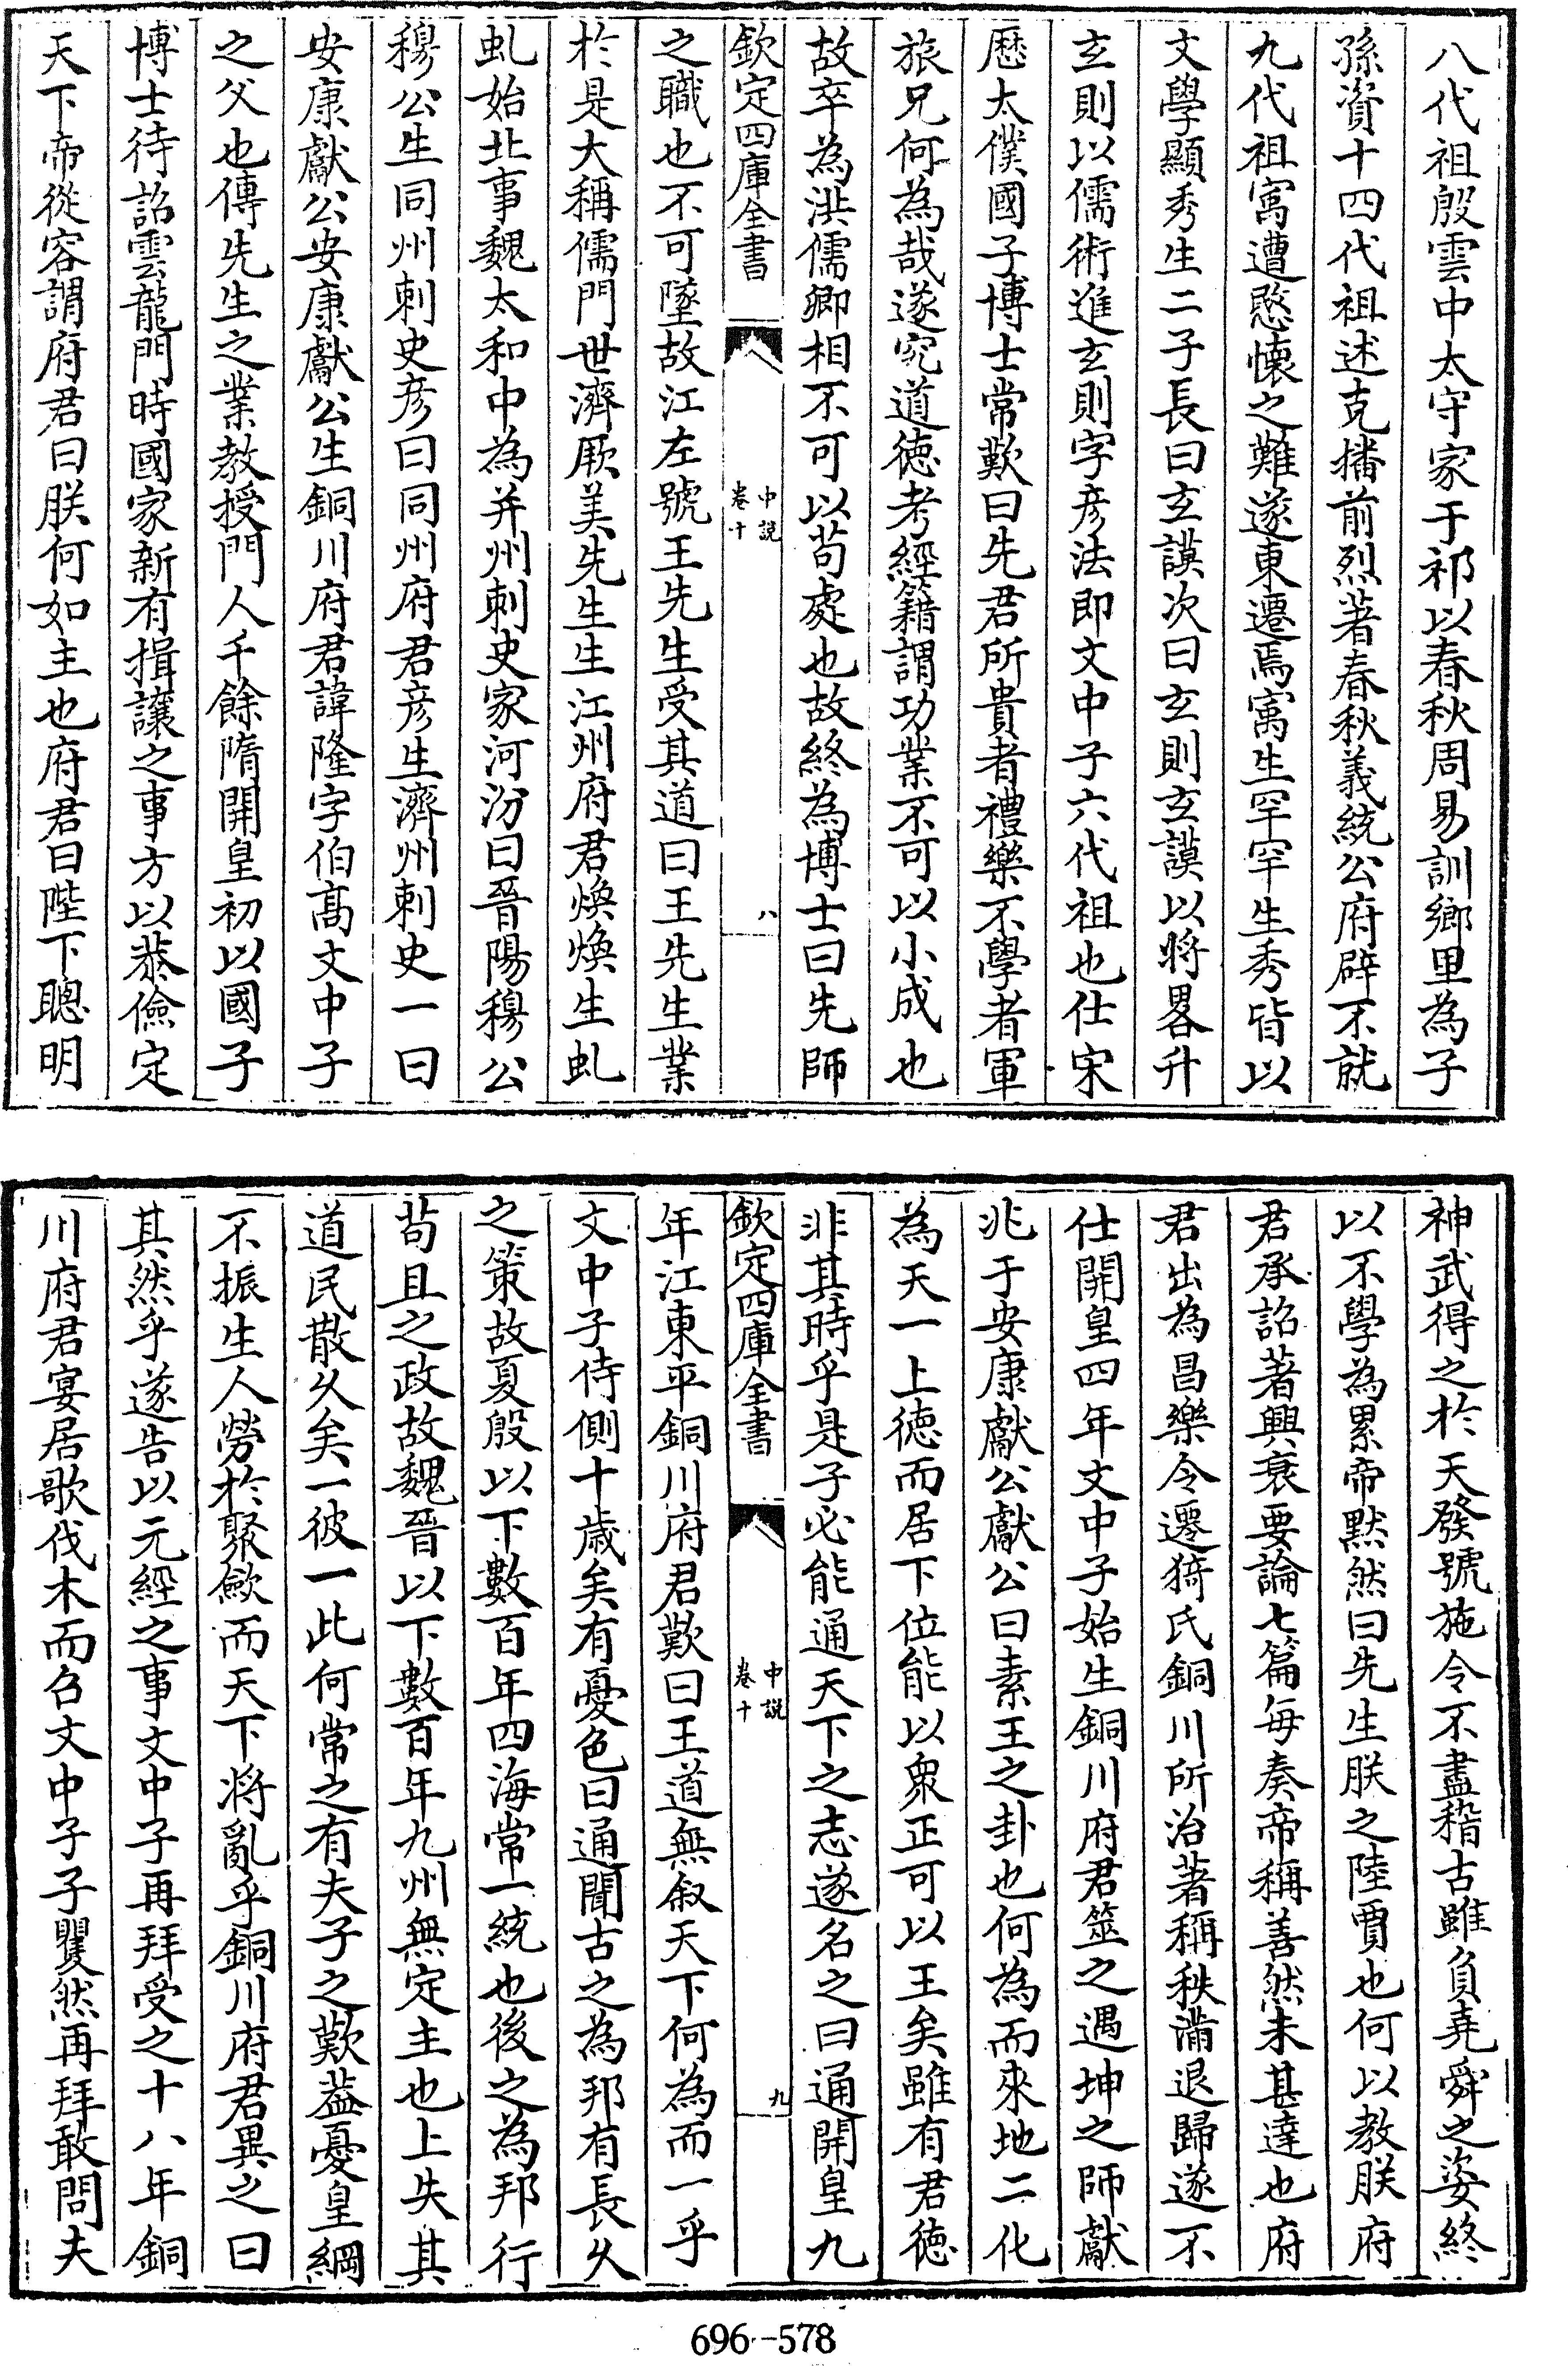 八代祖殷雲中太守家于祁以春秋周易訓鄉里為子
孫資十四代祖述克播前烈著春秋義統公府辟不就
九代祖寓遭愍懷之難遂東遷焉寓生罕罕生秀皆以
文學顯秀生二子長曰玄謨次曰玄則玄謨以將畧升
玄則以儒術進玄則字彦法即文中子六代祖也仕宋
歷太僕國子博士常歎曰先君所貴者禮樂不學者軍
旅兄何為哉遂究道徳考經籍謂功業不可以小成也
故卒為洪儒卿相不可以苟處也故終為博士曰先師
欽定四庫全書
中説
卷十
八
之職也不可墜故江左號王先生受其道曰王先生業
於是大稱儒門世濟厥美先生生江州府君煥煥生虬
虬始北事魏太和中為并州刺史家河汾曰晉陽穆公
穆公生同州刺史彦曰同州府君彦生濟州刺史一曰
安康獻公安康獻公生銅川府君諱隆字伯髙文中子
之父也傳先生之業教授門人千餘隋開皇初以國子
博士待詔雲龍門時國家新有揖讓之事方以恭儉定
天下帝從容謂府君曰朕何如主也府君曰陛下聰明
神武得之於天發號施令不盡稽古雖負堯舜之姿終
以不學為累帝黙然曰先生朕之陸賈也何以教朕府
君承詔著興衰要論七篇每奏帝稱善然未甚達也府
君出為昌樂令遷猗氏銅川所治著稱秩滿退歸遂不
仕開皇四年文中子始生銅川府君筮之遇坤之師獻
兆于安康獻公獻公曰素王之卦也何為而來地二化
為天一上徳而居下位能以衆正可以王矣雖有君徳
非其時乎是子必能通天下之志遂名之曰通開皇九
欽定四庫全書
中説
卷十
九
年江東平銅川府君歎曰王道無叙天下何為而一乎
文中子侍側十歳矣有憂色曰通聞古之為邦有長久
之策故夏殷以下數百年四海常一統也後之為邦行
苟且之政故魏晉以下數百年九州無定主也上失其
道民散久矣一彼一此何常之有夫子之歎葢憂皇綱
不振生人勞於聚斂而天下將亂乎銅川府君異之曰
其然乎遂告以元經之事文中子再拜受之十八年銅
川府君宴居歌伐木而召文中子子矍然再拜敢問夫
696-578